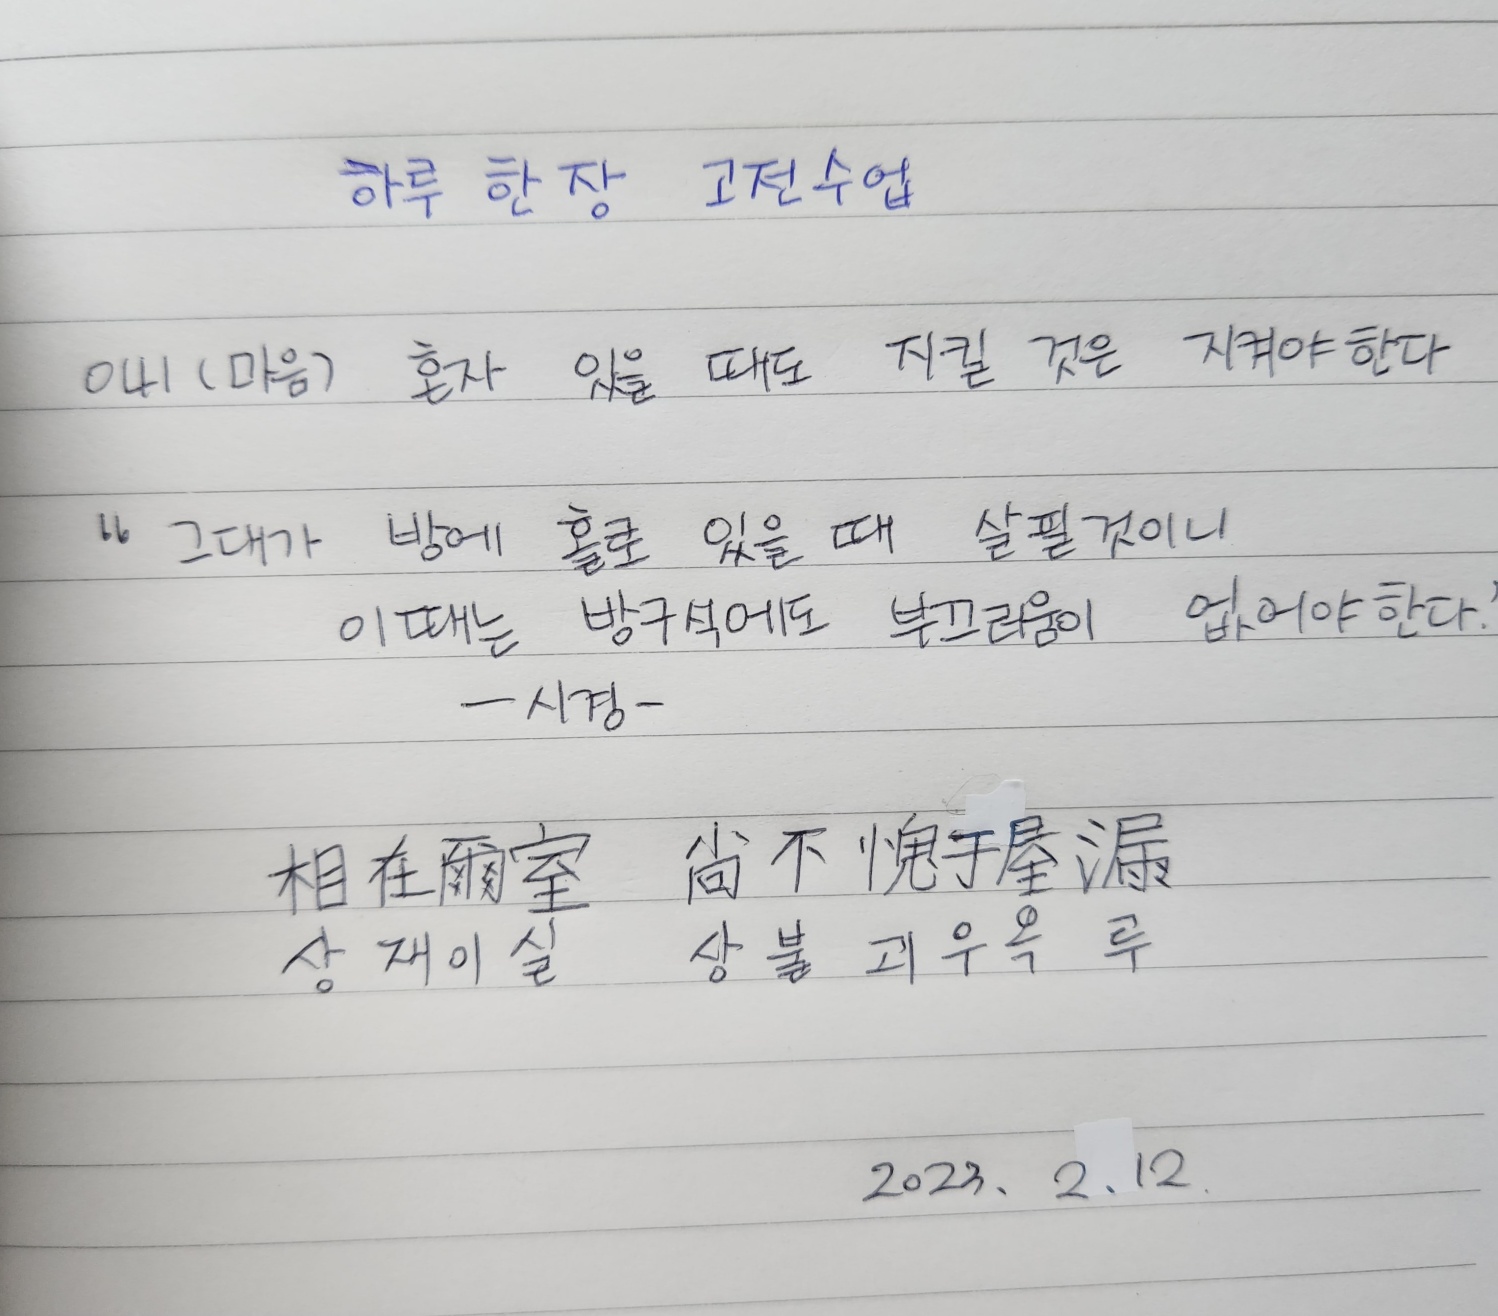 하루 한 장 고전수업
041 (마음) 혼자 있을 때도 지킬 것은 지켜야한다
“ 그대가 방에 홀로 있을 때 살필것이니
이때는 방구석에도 부끄러움이 없어야한다.”
- 시경 -
相在爾室 尙不愧于屋漏
상재이실 상불괴우옥루
2023. 2. 12.